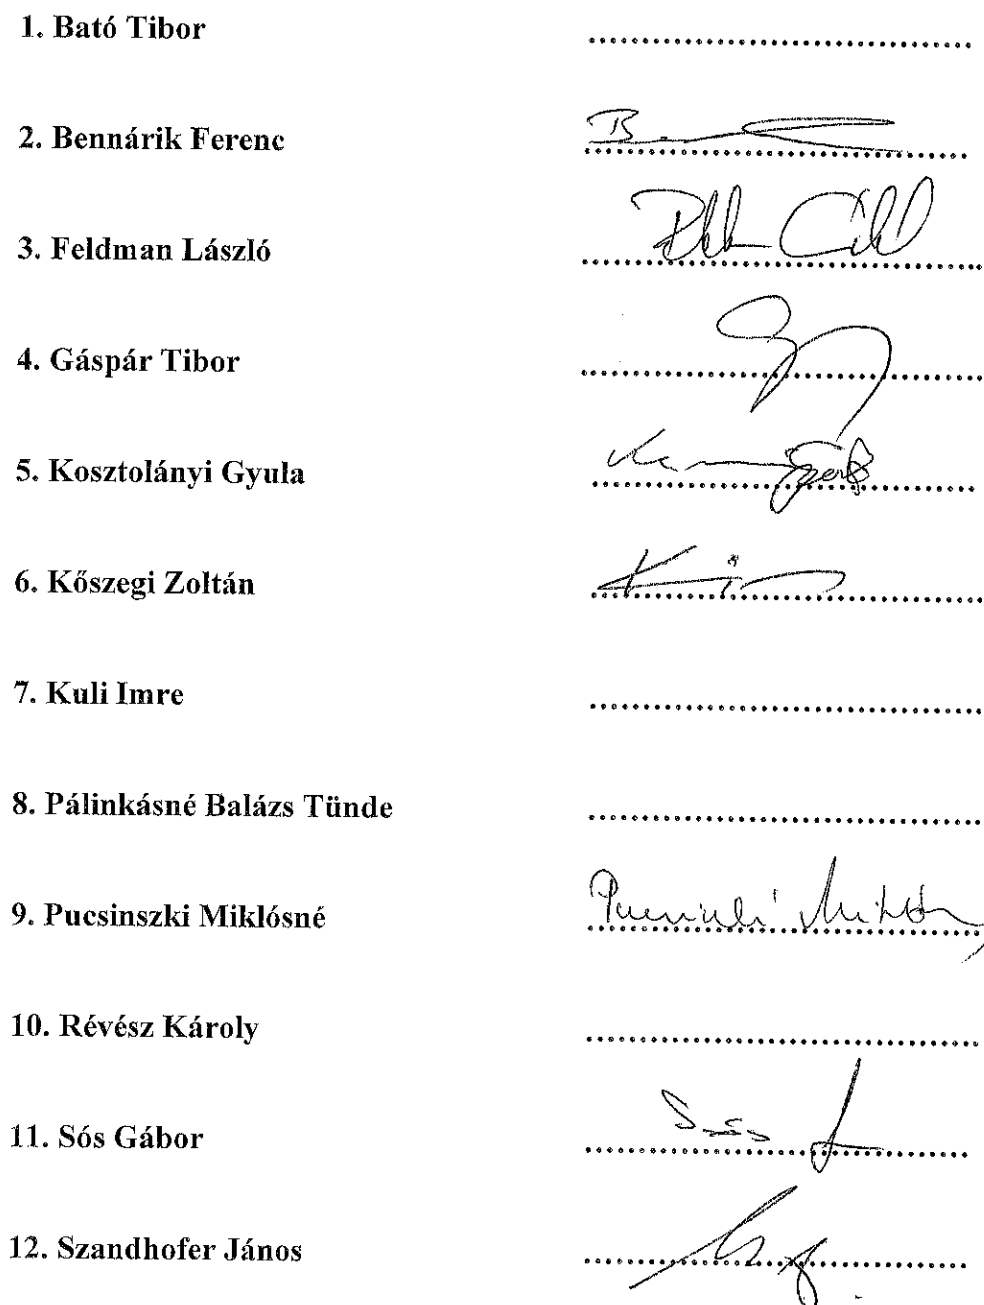 1. Bató Tibor
2. Bennárik Ferenc
3. Feldman László
4. Gáspár Tibor
5. Kosztolányi Gyula
6. Kőszegi Zoltán
7. Kuli Imre
8. Pálinkásné Balázs Tünde
9. Pucsinszki Miklósné
10. Révész Károly
11. Sós Gábor
12. Szandhofer János